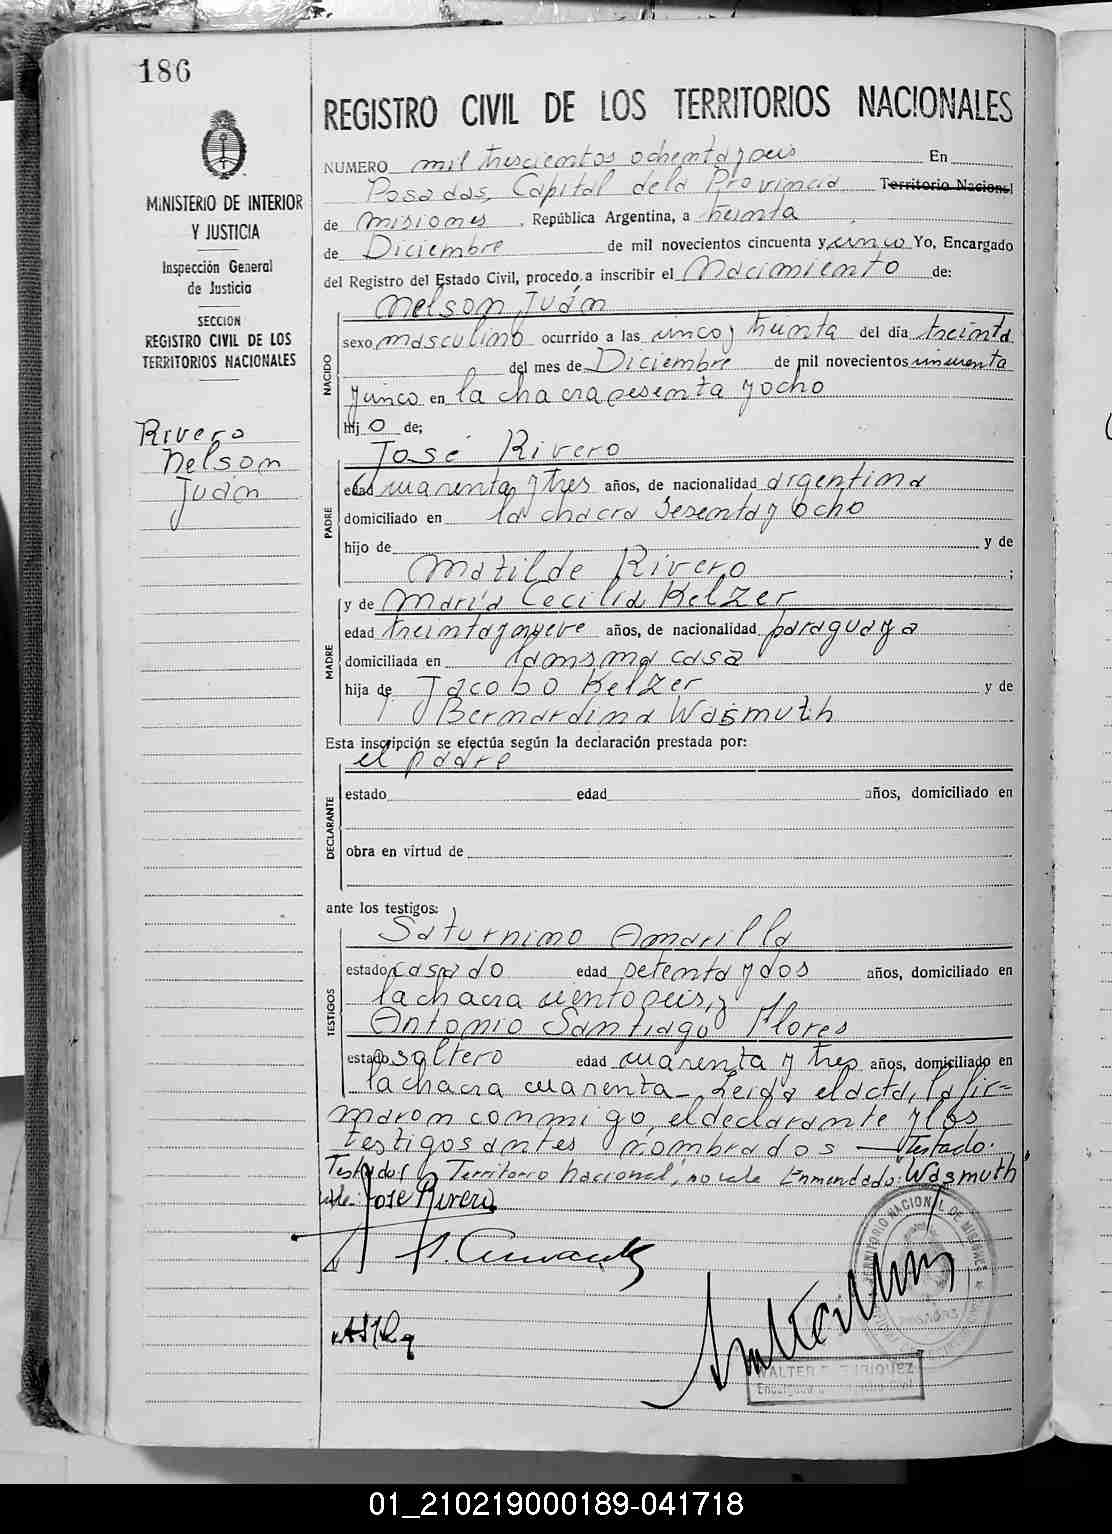 186
MINISTERIO DE INTERIOR
Y JUSTICIA
Inspección General
de Justicia
SECCION
REGISTRO CIVIL DE LOS
TERRITORIOS NACIONALES
Rivero
Nelson
Juán
REGISTRO CIVIL DE LOS TERRITORIOS NACIONALES
NUMERO mil trescientos ochenta y seis En
Posadas, Capital de la Provincia Territorio Nacional
de Misiones, República Argentina, a treinta
de Diciembre de mil novecientos cincuenta y cinco Yo, Encargado
del Registro del Estado Civil, procedo a inscribir el Nacimiento de:
Nelson Juán
NACIDO
sexo masculino ocurrido a las cinco y treinta del día treinta
del mes de Diciembre de mil novecientos cincuenta
y cinco en la chacra sesenta y ocho
hijo de;
José Rivero
PADRE
edad cuarenta y tres años, de nacionalidad argentina
domiciliado en la chacra sesenta y ocho
hijo de y de
Matilde Rivero ;
y de María Cecilia Kelzer
MADRE
edad treinta y nueve años, de nacionalidad paraguaya
domiciliada en la misma casa
hija de Jacobo Kelzer y de
Bernardina Wasmuth
Esta inscripción se efectúa según la declaración prestada por:
el padre
DECLARANTE
estado edad años, domiciliado en
obra en virtud de
ante los testigos:
Saturnino Amarilla
TESTIGOS
estado casado edad setenta y dos años, domiciliado en
la chacra ciento seis, y
Antonio Santiago Flores
estado soltero edad cuarenta y tres años, domiciliado en
la chacra cuarenta - Leida el acta, la fir=
maron conmigo, el declarante y los
testigos antes nombrados — Testado:
Testado: Territorio Nacional, no vale Enmendado: Wasmuth
vale José Rivero
TERRITORIO NACIONAL DE MISIONES
POSADAS
WALTER
01_210219000189-041718